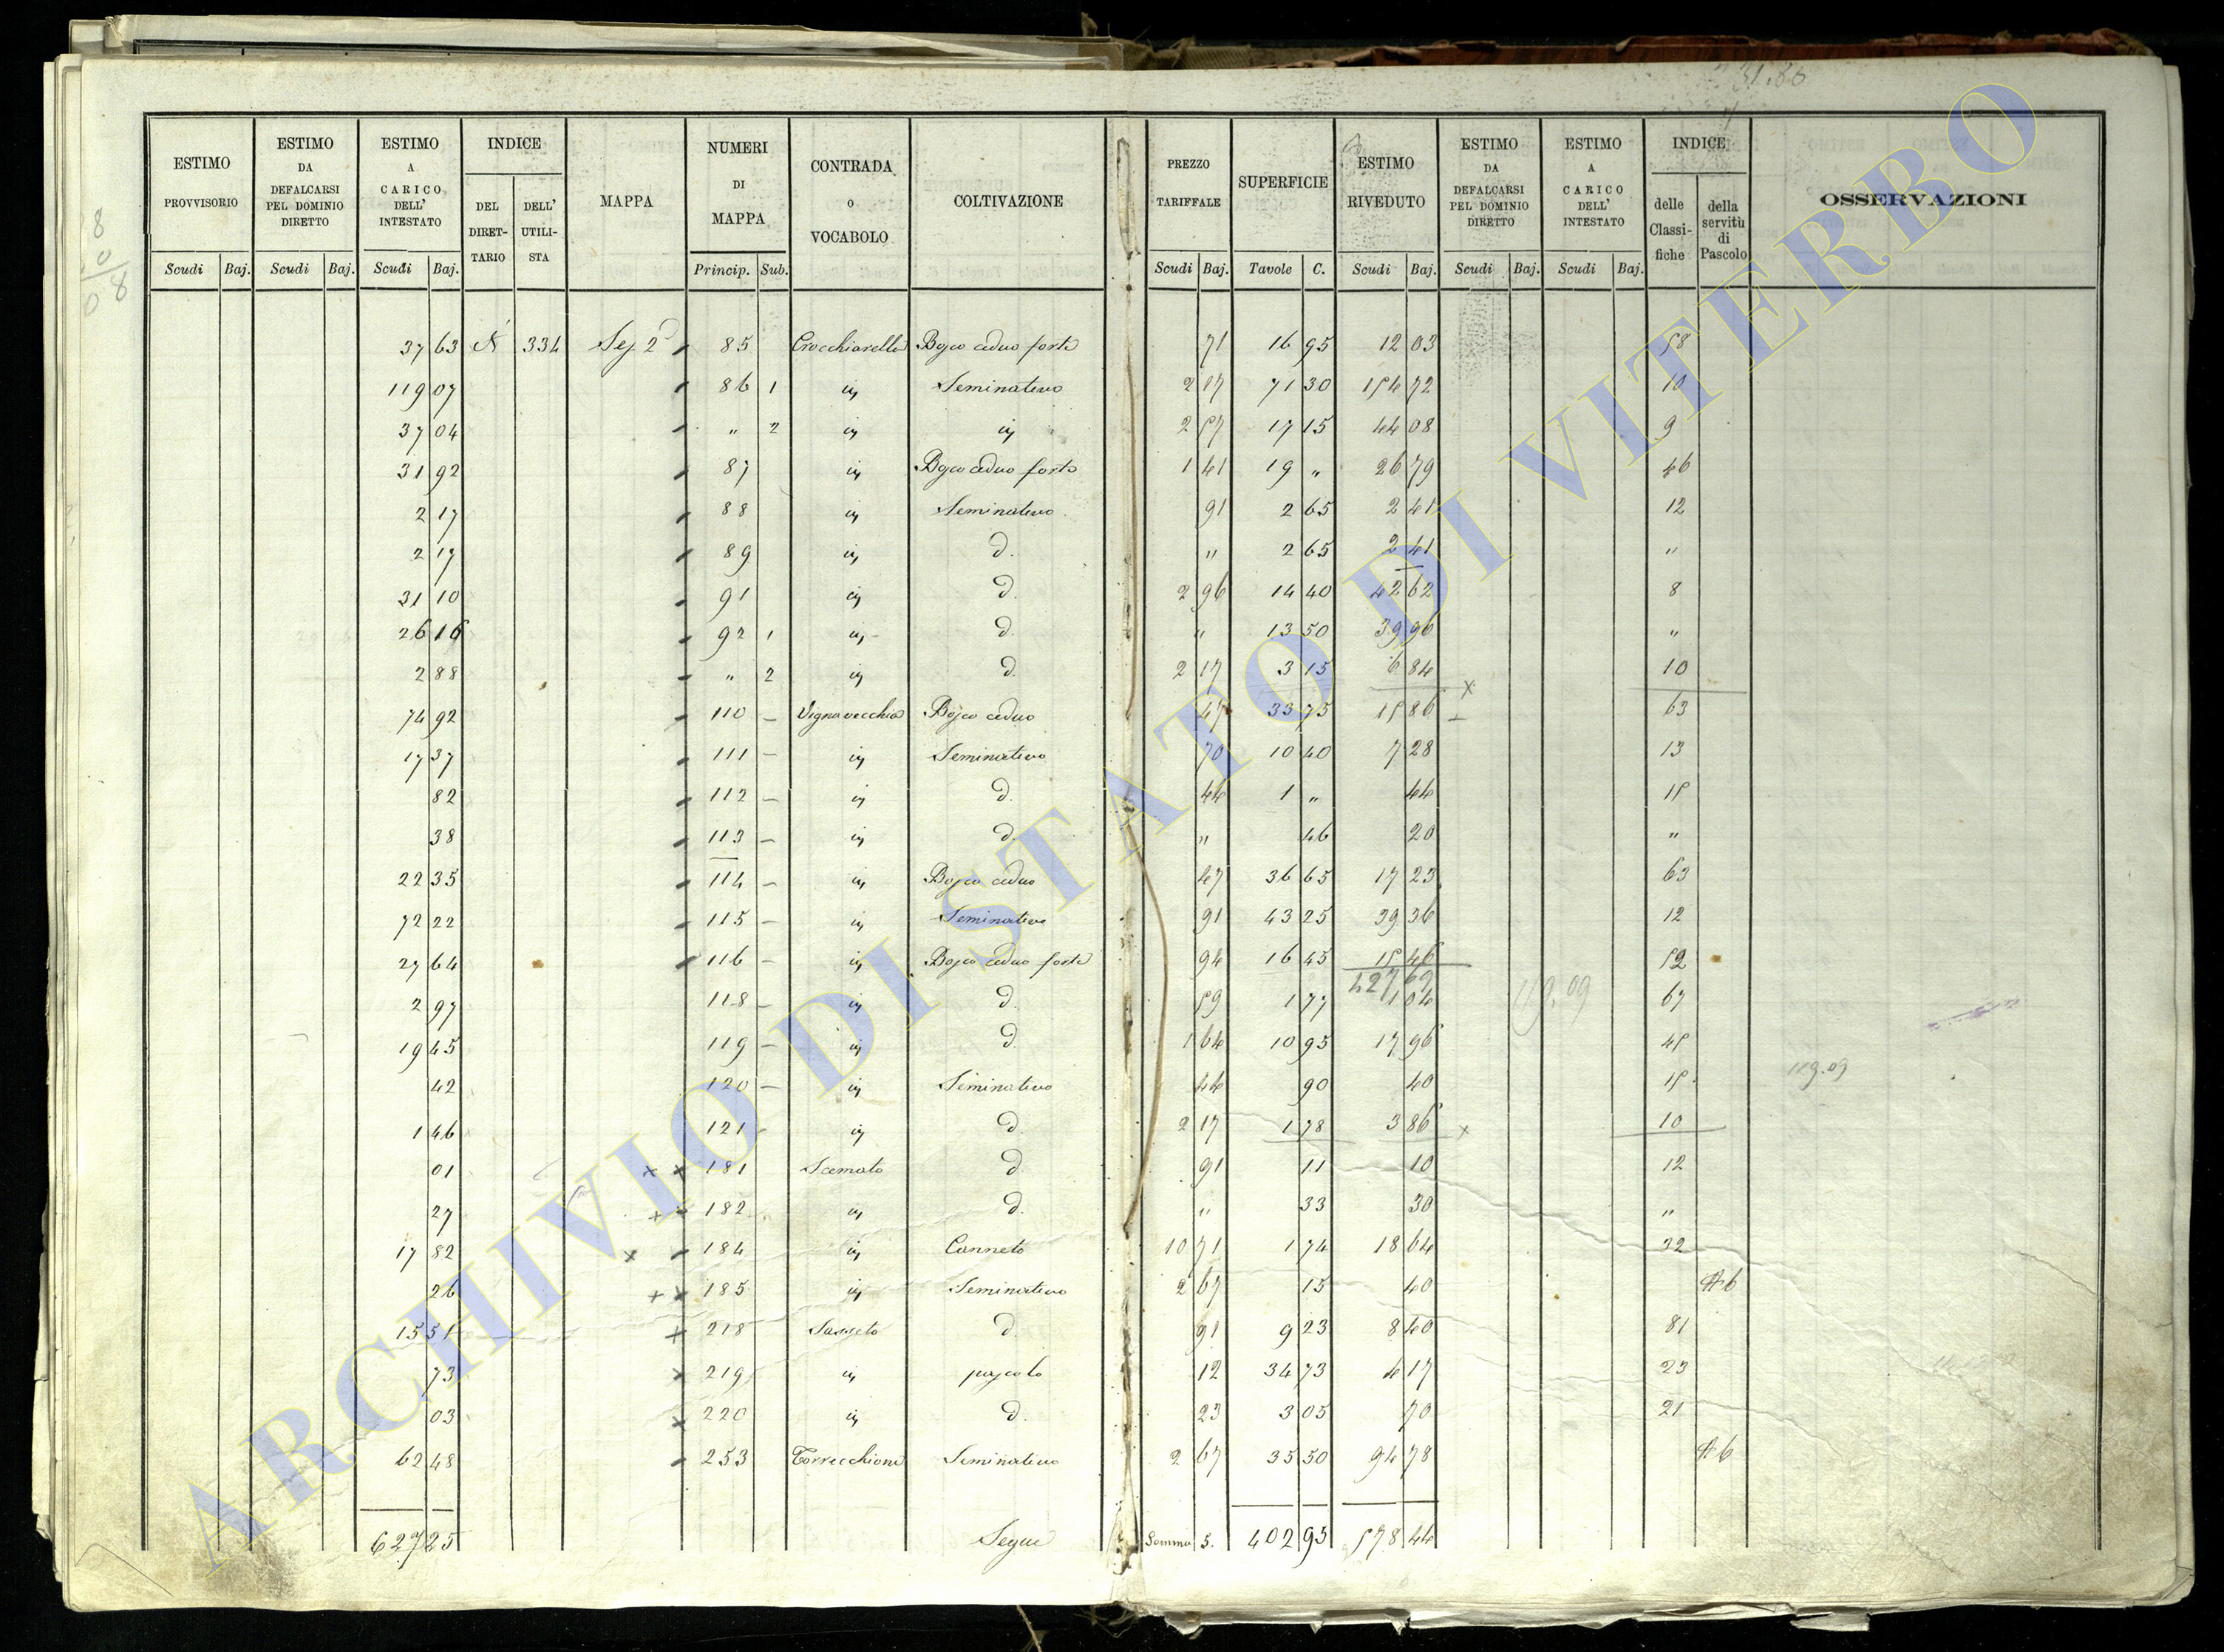 31.80
ESTIMO PROVVISORIO Scudi Baj.
ESTIMO DA DEFALCARSI PEL DOMINIO DIRETTO Scudi Baj.
ESTIMO A CARICO DELL' INTESTATO Scudi Baj.
INDICE DEL DIRETTARIO DELL' UTILISTA
MAPPA
NUMERI DI MAPPA Princip. Sub.
CONTRADA o VOCABOLO
COLTIVAZIONE
PREZZO TARIFFALE Scudi Baj.
SUPERFICIE Tavole C.
ESTIMO RIVEDUTO Scudi Baj.
ESTIMO DA DEFALCARSI PEL DOMINIO DIRETTO Scudi Baj.
ESTIMO A CARICO DELL' INTESTATO Scudi Baj.
INDICE delle Classifiche della servitù di Pascolo
OSSERVAZIONI
37 63 334 Sez 2ª 85 Crocchiarella Bosco ceduo forte 71 16 95 12 03 58
119 07 86 1 ij Seminativo 2 17 71 30 154 72 10
37 04 " 2 ij ij 2 57 17 15 44 08 9
31 92 87 ij Bosco ceduo forte 1 41 19 " 26 79 46
2 17 88 ij Seminativo 91 2 65 2 41 12
2 17 89 ij d. " 2 65 2 41 "
31 10 91 ij d. 2 96 14 40 42 62 8
26 16 92 1 ij d. " 13 50 39 96 "
2 88 " 2 ij d. 2 17 3 15 6 84 10
74 92 110 – Vigna vecchia Bosco ceduo 47 33 75 15 86 63
17 37 111 – ij Seminativo 70 10 40 7 28 13
82 112 – ij d. 44 1 " 44 15
38 113 – ij d. " 46 20 "
22 35 114 – ij Bosco ceduo 47 36 65 17 23 63
72 22 115 – ij Seminativo 91 43 25 39 36 12
27 64 116 – ij Bosco ceduo forte 94 16 45 15 46 52
427 69 119.09
2 97 118 – ij d. 59 1 77 1 04 67
19 45 119 – ij d. 1 64 10 95 17 96 45
119.09
42 120 – ij Seminativo 44 90 40 15
1 46 121 – ij d. 2 17 1 78 3 86 10
01 × × 181 Scemato d. 91 11 10 12
27 + 182 ij d. " 33 30 "
17 82 × 184 ij Canneto 10 71 1 74 18 64 32
26 + × 185 ij Seminativo 2 67 15 40
15 51 × 218 Sasseto d. 91 9 23 8 40 81
73 × 219 ij pascolo 12 34 73 4 17 23
03 × 220 ij d. 23 3 05 70 21
62 48 253 Torrecchione Seminativo 2 67 35 50 94 78
627 25 Segue Somma S. 402 95 578 44
ARCHIVIO DI STATO DI VITERBO